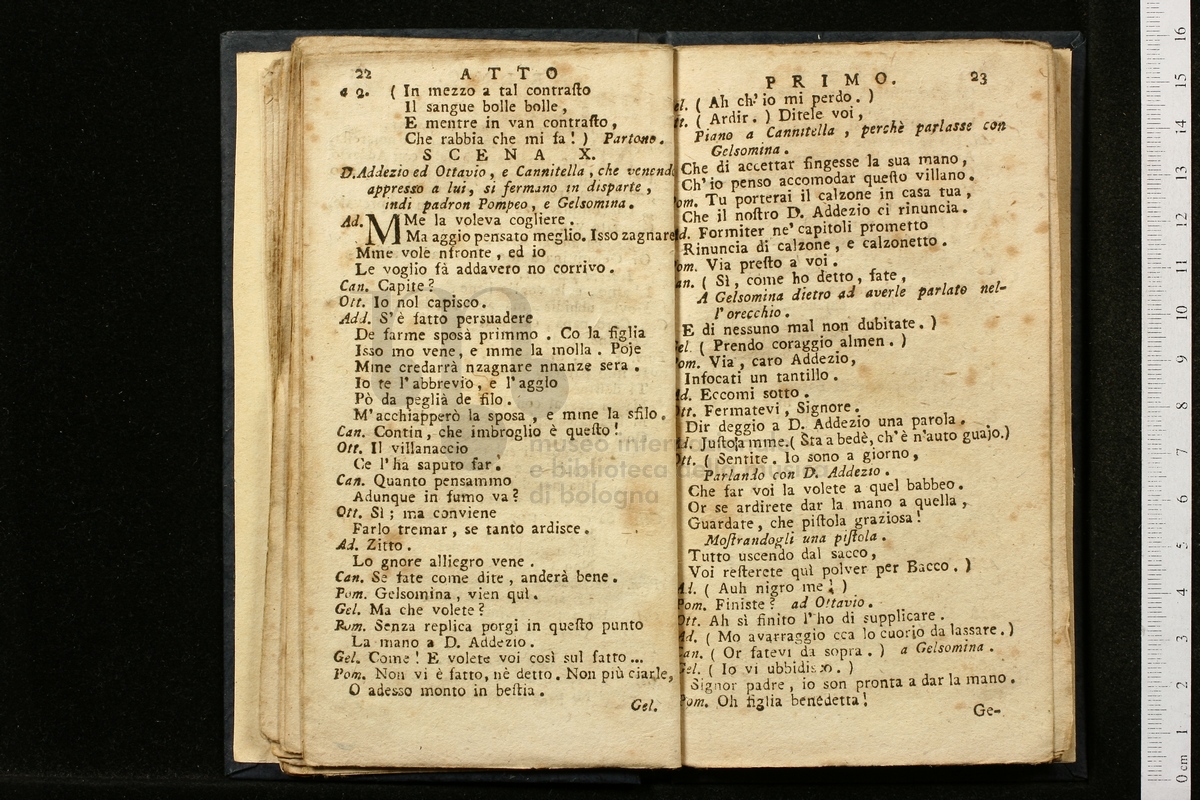 22 ATTO
a 2. ( In mezzo a tal contraſto
Il sangue bolle bolle,
E mentre in van contraſto,
Che rabbia che mi fa! ) Partono.
SCENA X.
D. Addezio ed Ottavio, e Cannitella, che venendo
appresso a lui, si fermano in disparte,
indi padron Pompeo, e Gelsomina.
Ad. MMe la voleva cogliere.
Ma aggio pensato meglio. Isso zagnare
Mme vole nfronte, ed io
Le voglio fà addavero no corrivo.
Can. Capite?
Ott. Io nol capisco.
Add. S'è fatto persuadere
De farme sposà primmo. Co la figlia
Isso mo vene, e mme la molla. Poje
Mme credarrà nzagnare nnanze sera.
Io te l'abbrevio, e l'agglo
Pò da peglià de filo.
M'acchiapperò la sposa, e mme la sfilo.
Can. Contin, che imbroglio è queſto!
Ott. Il villanaccio
Ce l'ha saputo far.
Can. Quanto pensammo
Adunque in fumo va?
Ott. Sì; ma conviene
Farlo tremar, se tanto ardisce.
Ad. Zitto.
Lo gnore alliegro vene.
Can. Se fate come dite, anderà bene.
Pom. Gelsomina, vien quì.
Gel. Ma che volete?
Pom. Senza replica porgi in queſto punto
La mano a D. Addezio.
Gel. Come! E volete voi così sul fatto...
Pom. Non vi è fatto, nè detto. Non più ciarle,
O adesso monto in beſtia.
Gel.
PRIMO. 23
el. ( Ah ch'io mi perdo. )
tt. ( Ardir. ) Ditele voi,
Piano a Cannitella, perchè parlasse con
Gelsomina.
Che di accettar fingesse la sua mano,
Ch'io penso accomodar queſto villano.
om. Tu porterai il calzone in casa tua,
Che il noſtro D. Addezio ci rinuncia.
d. Formiter ne' capitoli prometto
Rinuncia di calzone, e calzonetto.
om. Via preſto a voi.
an. ( Sì, come ho detto, fate,
A Gelsomina dietro ad averle parlato nel-
l'orecchio.
E di nessuno mal non dubitate. )
el. ( Prendo coraggio almen. )
om. Via, caro Addezio,
Infocati un tantillo.
d. Eccomi sotto.
tt. Fermatevi, Signore.
Dir deggio a D. Addezio una parola.
d. Juſto a mme. ( Sta a bedè, ch'è n'auto guajo. )
Ott. ( Sentite. Io sono a giorno,
Parlando con D. Addezio.
Che far voi la volete a quel babbeo.
Or se ardirete dar la mano a quella,
Guardate, che piſtola graziosa!
Moſtrandogli una piſtola.
Tutto uscendo dal sacco,
Voi reſterete quì polver per Bacco. )
Ad. ( Auh nigro me! )
Pom. Finiste? ad Ottavio.
Ott. Ah sì finito l'ho di supplicare.
Ad. ( Mo avarraggio cca lo cuorio da lassare. )
Can. ( Or fatevi da sopra. ) a Gelsomina.
Gel. ( Io vi ubbidisco. )
Signor padre, io son pronta a dar la mano.
Pom. Oh figlia benedetta!
Ge-
museo internazionale
e biblioteca della musica
di bologna
0 cm 1 2 3 4 5 6 7 8 9 10 11 12 13 14 15 16